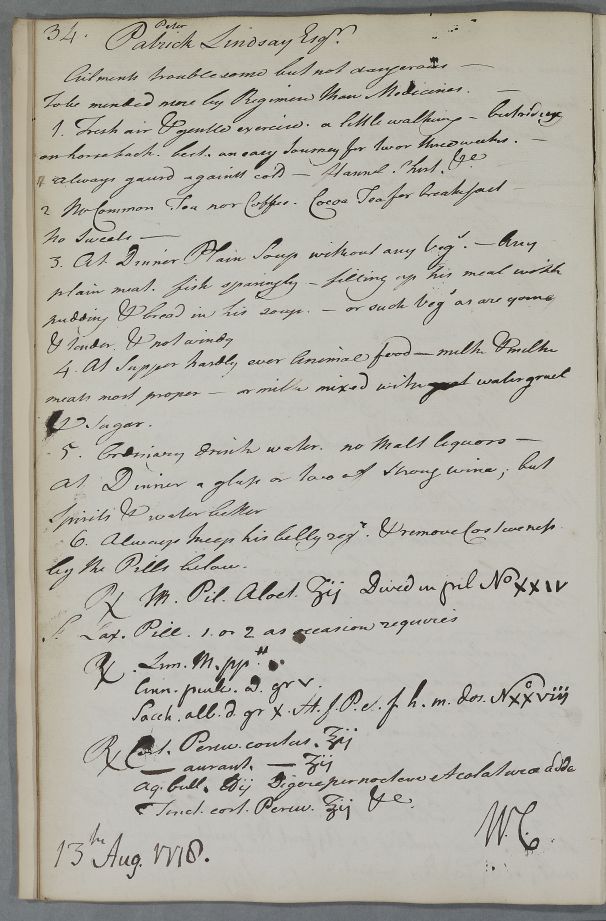 34.
Peter
Patrick Lindsay Esqr.
Ailments troublesome but not dangerous —
To be minded more by Regimen than Medicines. —
1. Fresh air & gentle exercise. a little walking – but riding
on horseback best. an easy Journey for two or three weeks. —
always guard against cold — flannel Shirt. &c
2 No Common Tea nor Coffee. Cocoa Tea for breakfast
No Sweats —
3. At Dinner Plain Soup without any Vegs. — Any
plain meat. fish sparingly – filling up his meal with
pudding & bread in his soup. — or such Vegs as are young
& tender & not windy
4. At Supper hardly ever Animal food — milk & milk
meats most proper — or milk mixed with water gruel
& Sugar.
5. Ordinary drink water. no Malt liquors —
At Dinner a glass or two of Strong wine; but
Spirits & water better
6. Always keep his belly regr. & remove Costiveness
by the Pills below.
℞ M. Pil. Aloet. ʒij Divid in pil No XXIV
S. Lax. Pill. 1. or 2 as occasion requires
℞ Lim. M. ppti
Cinn. pulv. a. gr v.
Sacch. alb. d. gr X. M. f. P. s. f. h. m. dos. No XXVIII
℞ Cort. Peruv. contus. ʒij
— aurant. — ʒij
Aq. bull. Digere per noctem et colaturae adde
Tinct. cort. Peruv. ʒij &c
W.C.
13th Aug. 1778.